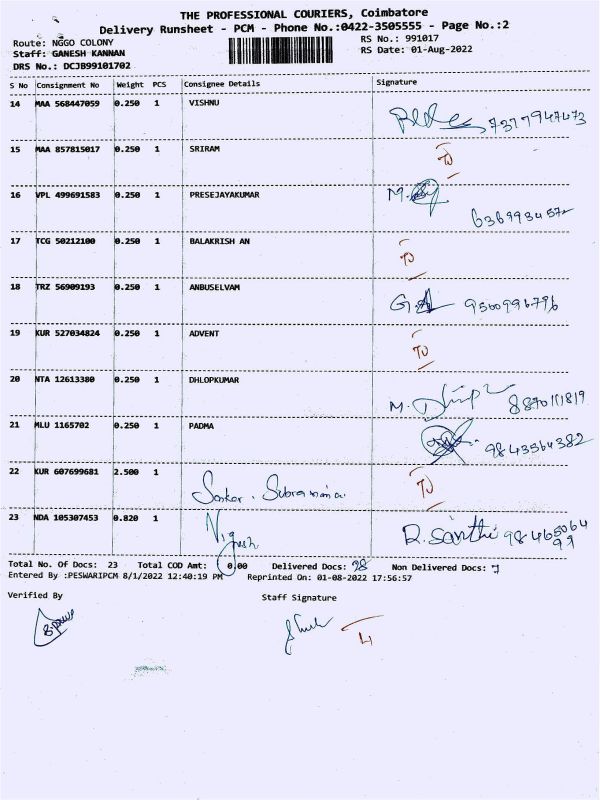 THE PROFESSIONAL COURIERS, Coimbatore
Delivery Runsheet - PCM - Phone No.:0422-3505555 - Page No.:2
Route: NGGO COLONY RS No.: 991017
Staff: GANESH KANNAN RS Date: 01-Aug-2022
DRS No.: DCJB99101702
S No Consignment No Weight PCS Consignee Details Signature
14 MAA 568447059 0.250 1 VISHNU 7377947473
15 MAA 857815017 0.250 1 SRIRAM
16 VPL 499691583 0.250 1 PRESEJAYAKUMAR M.
17 TCG 50212100 0.250 1 BALAKRISH AN
18 TRZ 56909193 0.250 1 ANBUSELVAM 9500996796
19 KUR 527034824 0.250 1 ADVENT
20 NTA 12613380 0.250 1 DHLOPKUMAR M. 8870111819
21 MLU 1165702 0.250 1 PADMA 9843564382
22 KUR 607699681 2.500 1
23 NDA 105307453 0.820 1 R. Santhi
Total No. Of Docs: 23 Total COD Amt: 0.00 Delivered Docs: Non Delivered Docs: 7
Entered By :PESWARIPCM 8/1/2022 12:40:19 PM Reprinted On: 01-08-2022 17:56:57
Verified By Staff Signature